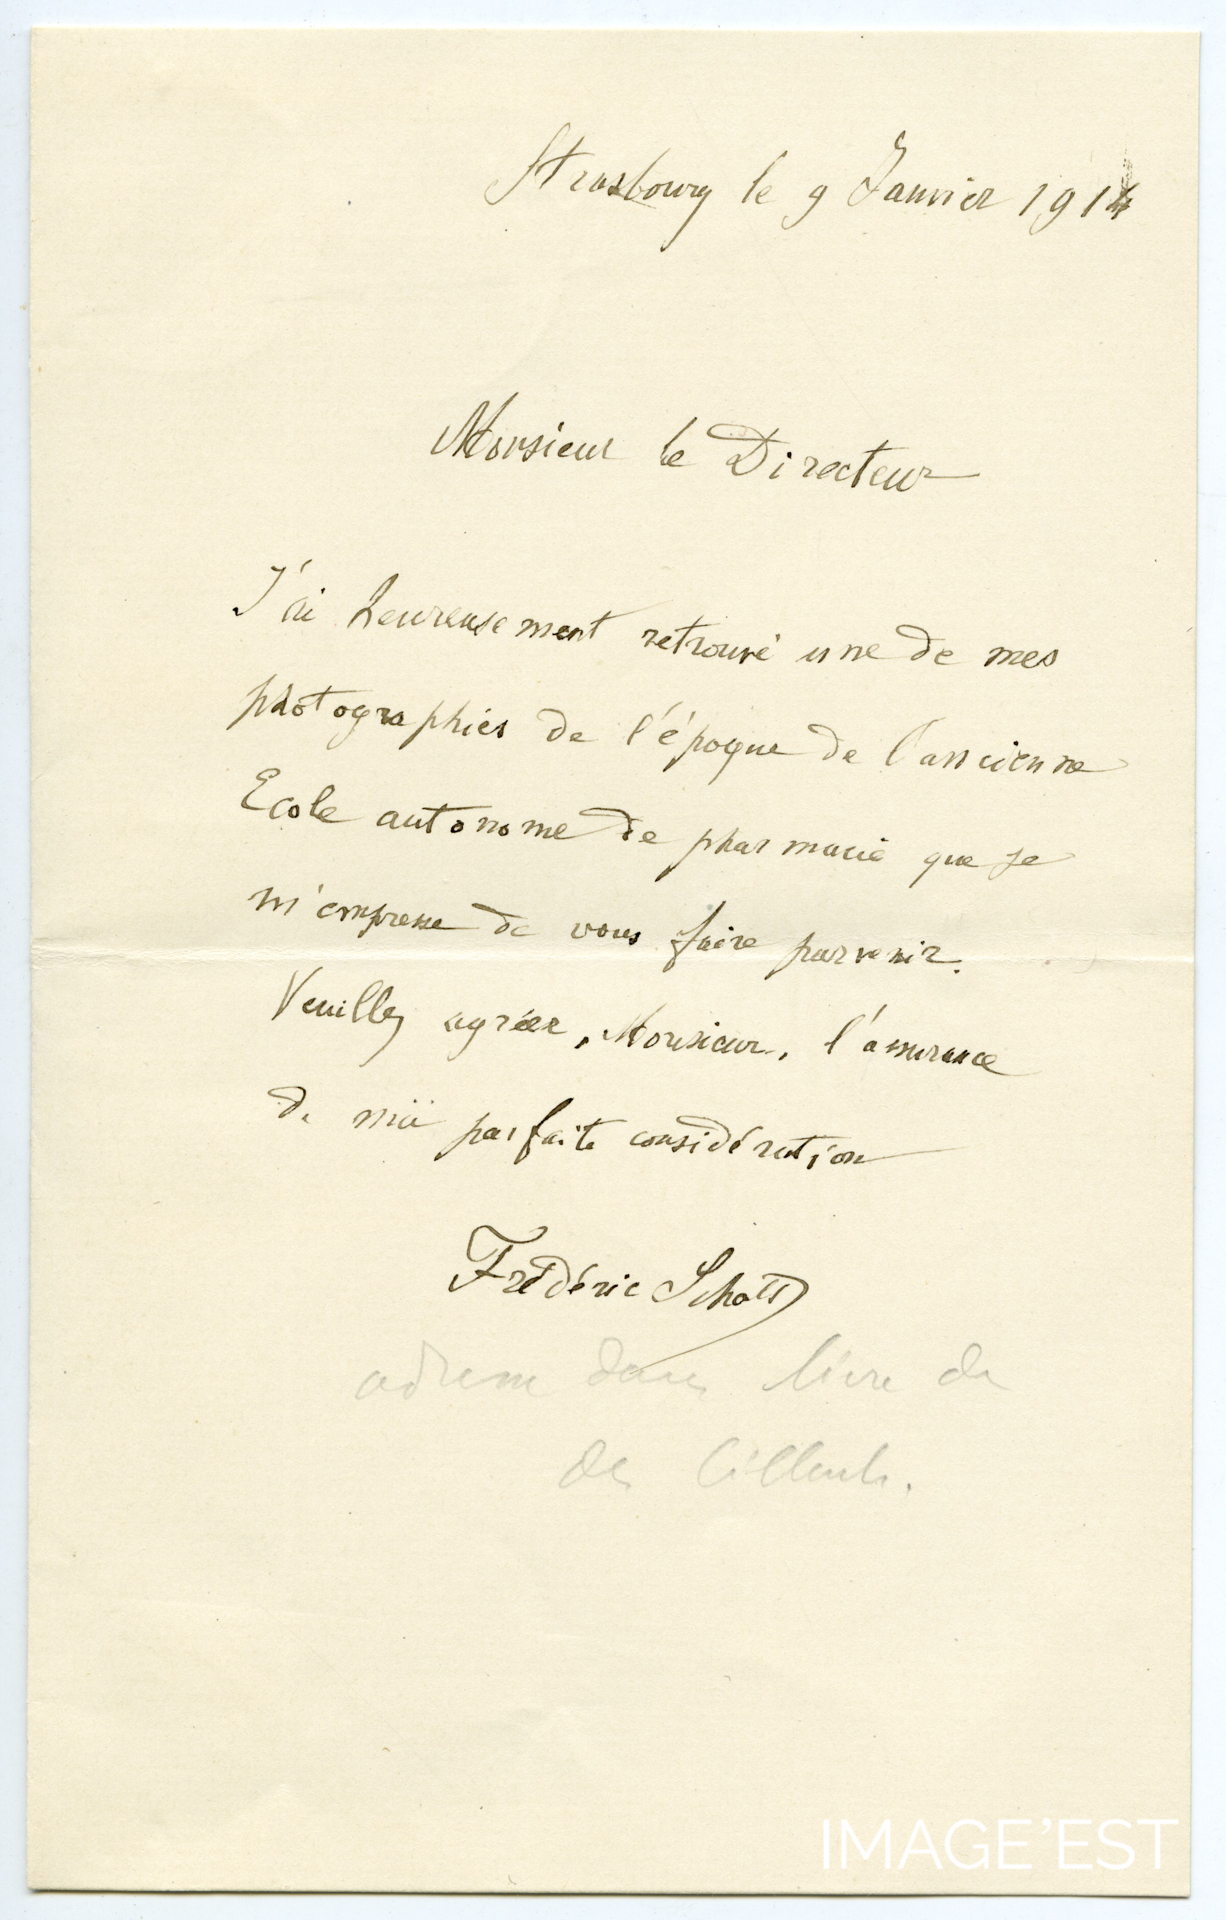 Strasbourg le 9 Janvier 1914
Monsieur le Directeur
J'ai heureusement retrouvé une de mes
photographies de l'époque de l'ancienne
Ecole autonome de pharmacie que je
m'empresse de vous faire parvenir.
Veuillez agréer, Monsieur, l'assurance
de ma parfaite considération
Frédéric Schott
adresse dans livre de
des
IMAGE'EST